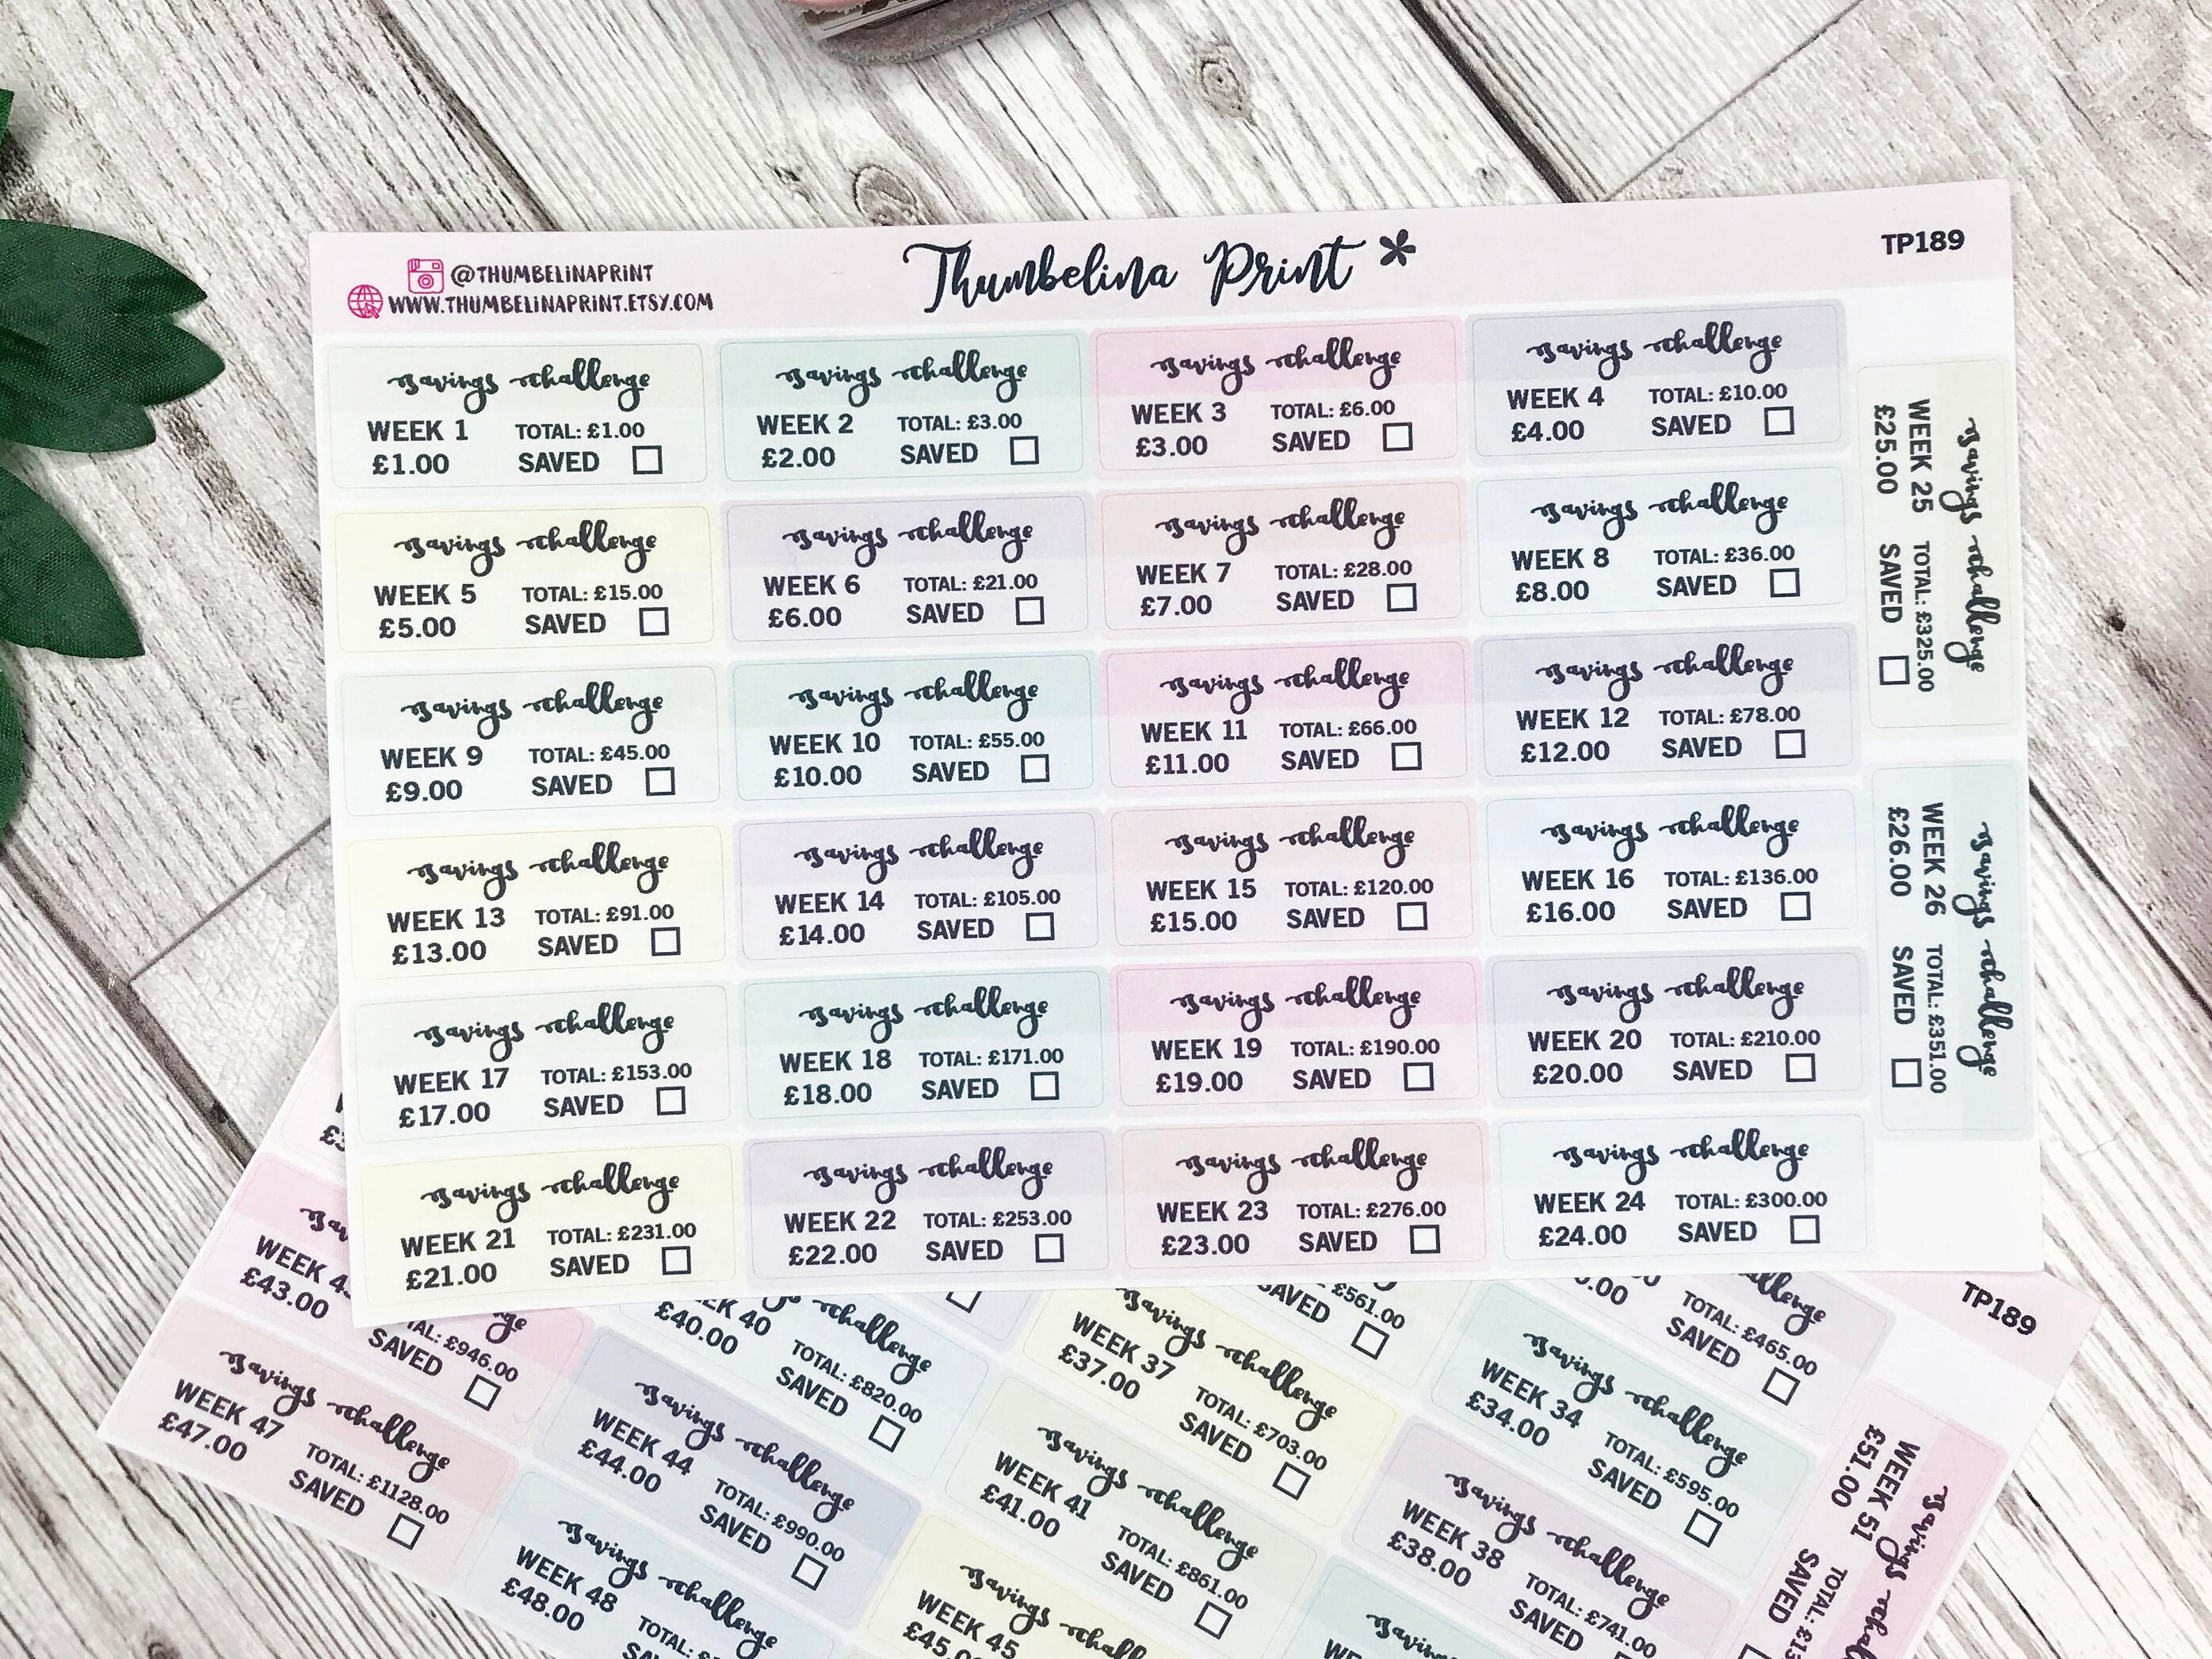 @THUMBELINAPRINT
WWW.THUMBELINAPRINT.ETSY.COM
Thumbelina Print *
TP189
Savings Challenge
WEEK 1 TOTAL: £1.00
£1.00 SAVED
Savings Challenge
WEEK 2 TOTAL: £3.00
£2.00 SAVED
Savings Challenge
WEEK 3 TOTAL: £6.00
£3.00 SAVED
Savings Challenge
WEEK 4 TOTAL: £10.00
£4.00 SAVED
Savings Challenge
WEEK 5 TOTAL: £15.00
£5.00 SAVED
Savings Challenge
WEEK 6 TOTAL: £21.00
£6.00 SAVED
Savings Challenge
WEEK 7 TOTAL: £28.00
£7.00 SAVED
Savings Challenge
WEEK 8 TOTAL: £36.00
£8.00 SAVED
Savings Challenge
WEEK 9 TOTAL: £45.00
£9.00 SAVED
Savings Challenge
WEEK 10 TOTAL: £55.00
£10.00 SAVED
Savings Challenge
WEEK 11 TOTAL: £66.00
£11.00 SAVED
Savings Challenge
WEEK 12 TOTAL: £78.00
£12.00 SAVED
Savings Challenge
WEEK 13 TOTAL: £91.00
£13.00 SAVED
Savings Challenge
WEEK 14 TOTAL: £105.00
£14.00 SAVED
Savings Challenge
WEEK 15 TOTAL: £120.00
£15.00 SAVED
Savings Challenge
WEEK 16 TOTAL: £136.00
£16.00 SAVED
Savings Challenge
WEEK 17 TOTAL: £153.00
£17.00 SAVED
Savings Challenge
WEEK 18 TOTAL: £171.00
£18.00 SAVED
Savings Challenge
WEEK 19 TOTAL: £190.00
£19.00 SAVED
Savings Challenge
WEEK 20 TOTAL: £210.00
£20.00 SAVED
Savings Challenge
WEEK 21 TOTAL: £231.00
£21.00 SAVED
Savings Challenge
WEEK 22 TOTAL: £253.00
£22.00 SAVED
Savings Challenge
WEEK 23 TOTAL: £276.00
£23.00 SAVED
Savings Challenge
WEEK 24 TOTAL: £300.00
£24.00 SAVED
Savings Challenge
WEEK 25 TOTAL: £325.00
£25.00 SAVED
Savings Challenge
WEEK 26 TOTAL: £351.00
£26.00 SAVED
TP189
TOTAL: £465.00
SAVED
£561.00
SAVED
Savings Challenge
WEEK 34 TOTAL: £595.00
£34.00 SAVED
Savings Challenge
WEEK 37 TOTAL: £703.00
£37.00 SAVED
Savings Challenge
WEEK 38 TOTAL: £741.00
£38.00 SAVED
Challenge
40 TOTAL: £820.00
£40.00 SAVED
Savings Challenge
WEEK 41 TOTAL: £861.00
£41.00 SAVED
WEEK
£43.00 £946.00
SAVED
Savings Challenge
WEEK 44 TOTAL: £990.00
£44.00 SAVED
Savings
WEEK 45
Savings Challenge
WEEK 47 TOTAL: £1128.00
£47.00 SAVED
Savings Challenge
WEEK 48 TOTAL:
£48.00
Savings
WEEK 51 TOTAL:
£51.00 SAVED